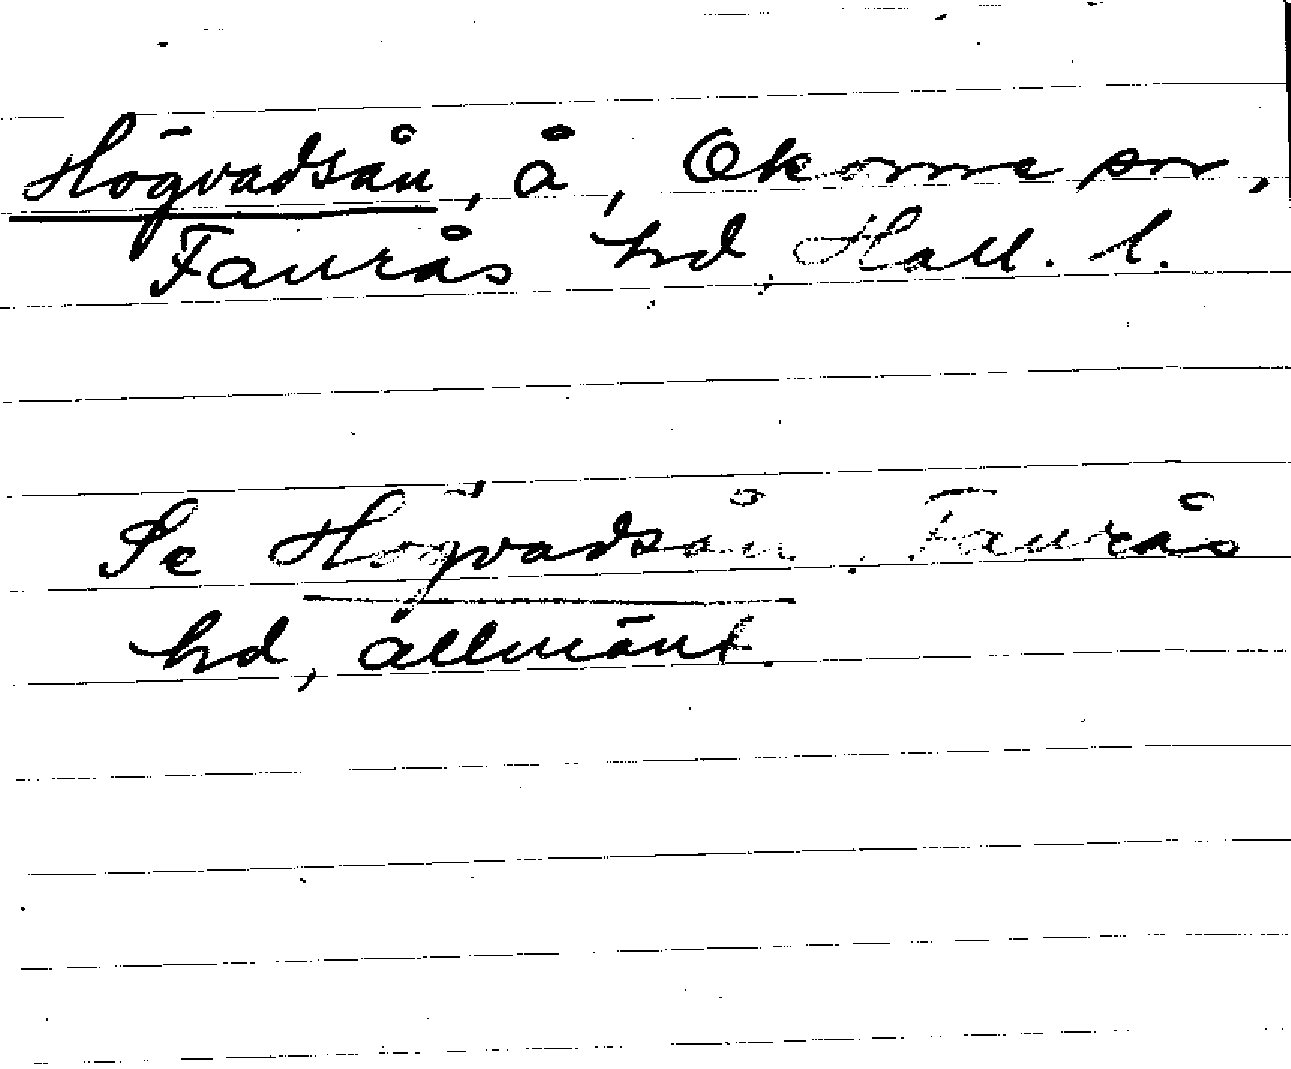 Högvadsån, å, Okome sn,
Faurås hd, Hall. l.
Se Högvadsån, Faurås
hd, allmänt.